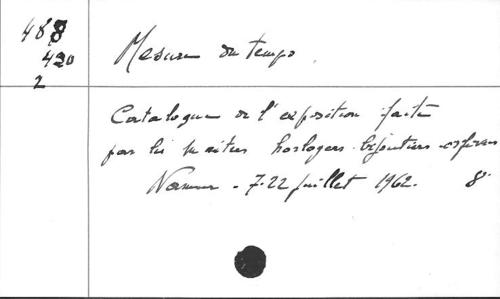 488
420
2
Mesure du temps.
Catalogue de l'exposition faite
par les maitres horlogers bijoutiers orfèvres
Namur - 7-22 juillet 1962. 8°